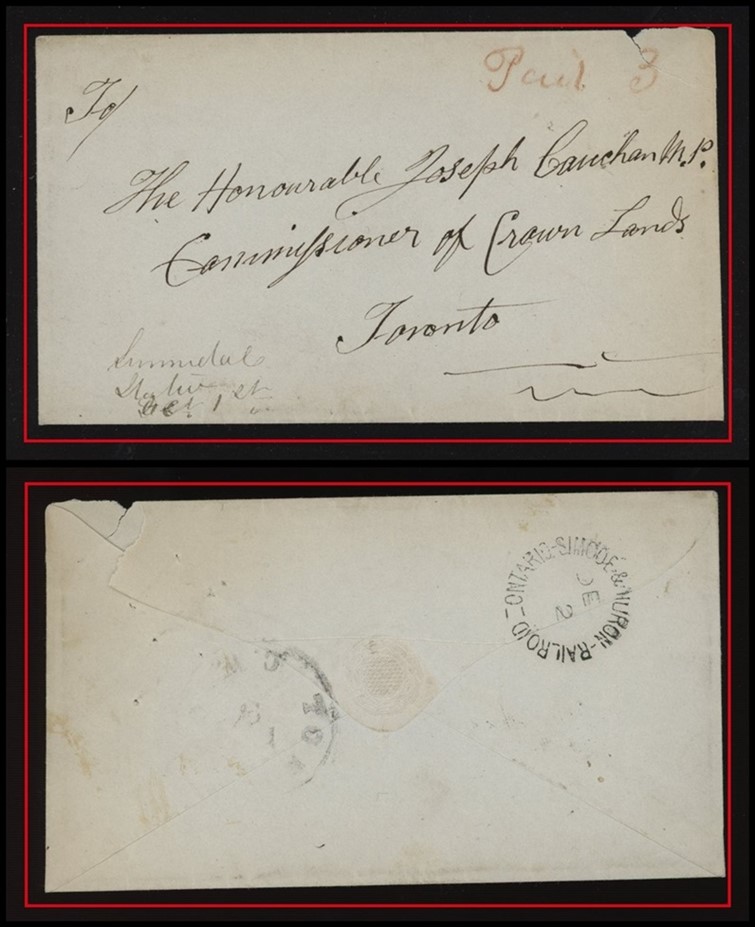 Paid 3
To/
The Honourable Joseph Cauchon M.P.
Commissioner of Crown Lands
Toronto
Sunnidale
1st
ONTARIO-SIMCOE-&-HURON-RAILROAD-
DE 2
C.W
TOR